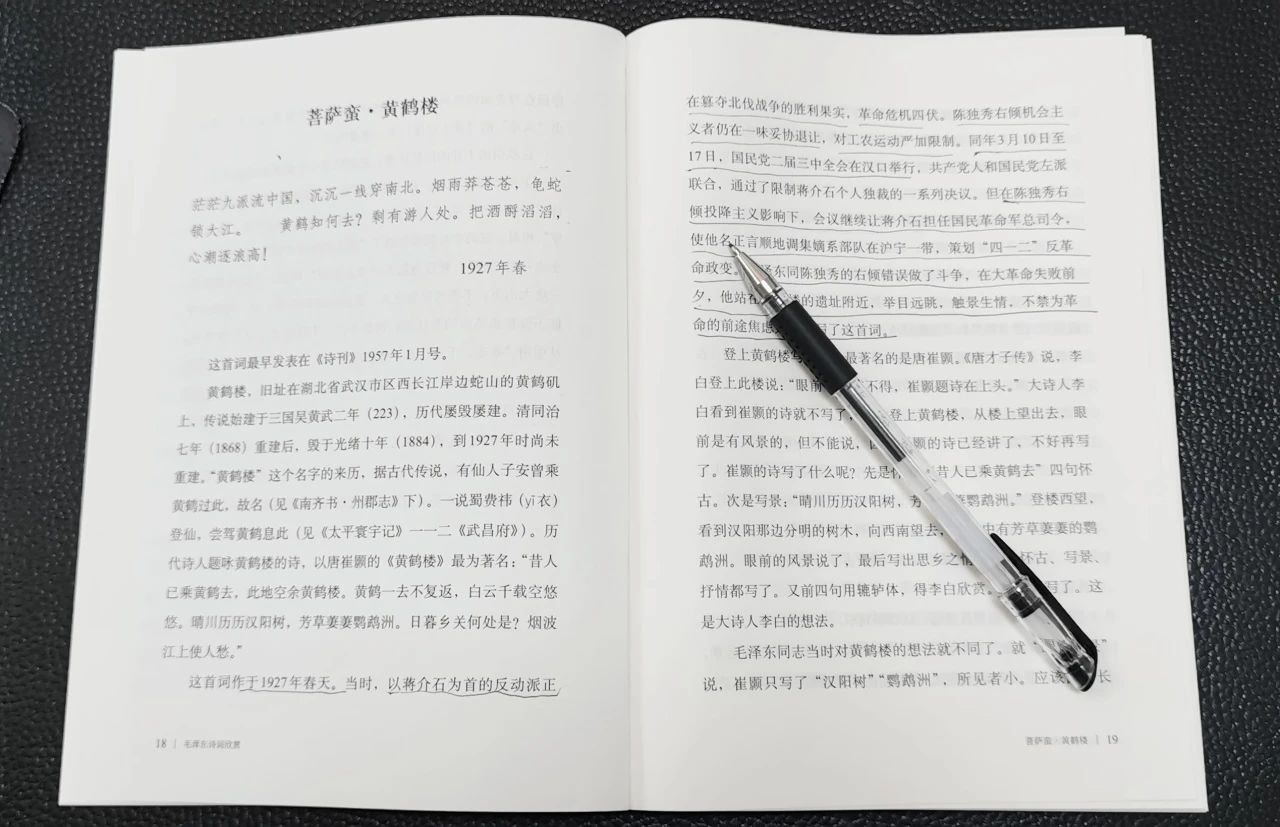 菩萨蛮·黄鹤楼
茫茫九派流中国，沉沉一线穿南北。烟雨莽苍苍，龟蛇
锁大江。　　黄鹤知何去？剩有游人处。把酒酹滔滔，
心潮逐浪高！
1927年春
这首词最早发表在《诗刊》1957年1月号。
黄鹤楼，旧址在湖北省武汉市区西长江岸边蛇山的黄鹤矶
上，传说始建于三国吴黄武二年（223），历代屡毁屡建。清同治
七年（1868）重建后，毁于光绪十年（1884），到1927年时尚未
重建。“黄鹤楼”这个名字的来历，据古代传说，有仙人子安曾乘
黄鹤过此，故名（见《南齐书·州郡志》下）。一说蜀费祎（yī衣）
登仙，尝驾黄鹤息此（见《太平寰宇记》一一二《武昌府》）。历
代诗人题咏黄鹤楼的诗，以唐崔颢的《黄鹤楼》最为著名：“昔人
已乘黄鹤去，此地空余黄鹤楼。黄鹤一去不复返，白云千载空悠
悠。晴川历历汉阳树，芳草萋萋鹦鹉洲。日暮乡关何处是？烟波
江上使人愁。”
这首词作于1927年春天。当时，以蒋介石为首的反动派正
18 | 毛泽东诗词欣赏
在篡夺北伐战争的胜利果实，革命危机四伏。陈独秀右倾机会主
义者仍在一味妥协退让，对工农运动严加限制。同年3月10日至
17日，国民党二届三中全会在汉口举行，共产党人和国民党左派
联合，通过了限制蒋介石个人独裁的一系列决议。但在陈独秀右
倾投降主义影响下，会议继续让蒋介石担任国民革命军总司令，
使他名正言顺地调集嫡系部队在沪宁一带，策划“四一二”反革
命政变。泽东同陈独秀的右倾错误做了斗争，在大革命失败前
夕，他站在楼的遗址附近，举目远眺，触景生情，不禁为革
命的前途焦虑了这首词。
登上黄鹤楼最著名的是唐崔颢。《唐才子传》说，李
白登上此楼说：“眼前不得，崔颢题诗在上头。”大诗人李
白看到崔颢的诗就不写了，登上黄鹤楼，从楼上望出去，眼
前是有风景的，但不能说，颢的诗已经讲了，不好再写
了。崔颢的诗写了什么呢？先是“昔人已乘黄鹤去”四句怀
古。次是写景：“晴川历历汉阳树，芳萋鹦鹉洲。”登楼西望，
看到汉阳那边分明的树木，向西南望去，中有芳草萋萋的鹦
鹉洲。眼前的风景说了，最后写出思乡之情怀古、写景、
抒情都写了。又前四句用辘轳体，得李白欣赏。写了。这
是大诗人李白的想法。
毛泽东同志当时对黄鹤楼的想法就不同了。就
说，崔颢只写了“汉阳树”“鹦鹉洲”，所见者小。应该长
菩萨蛮·黄鹤楼 | 19